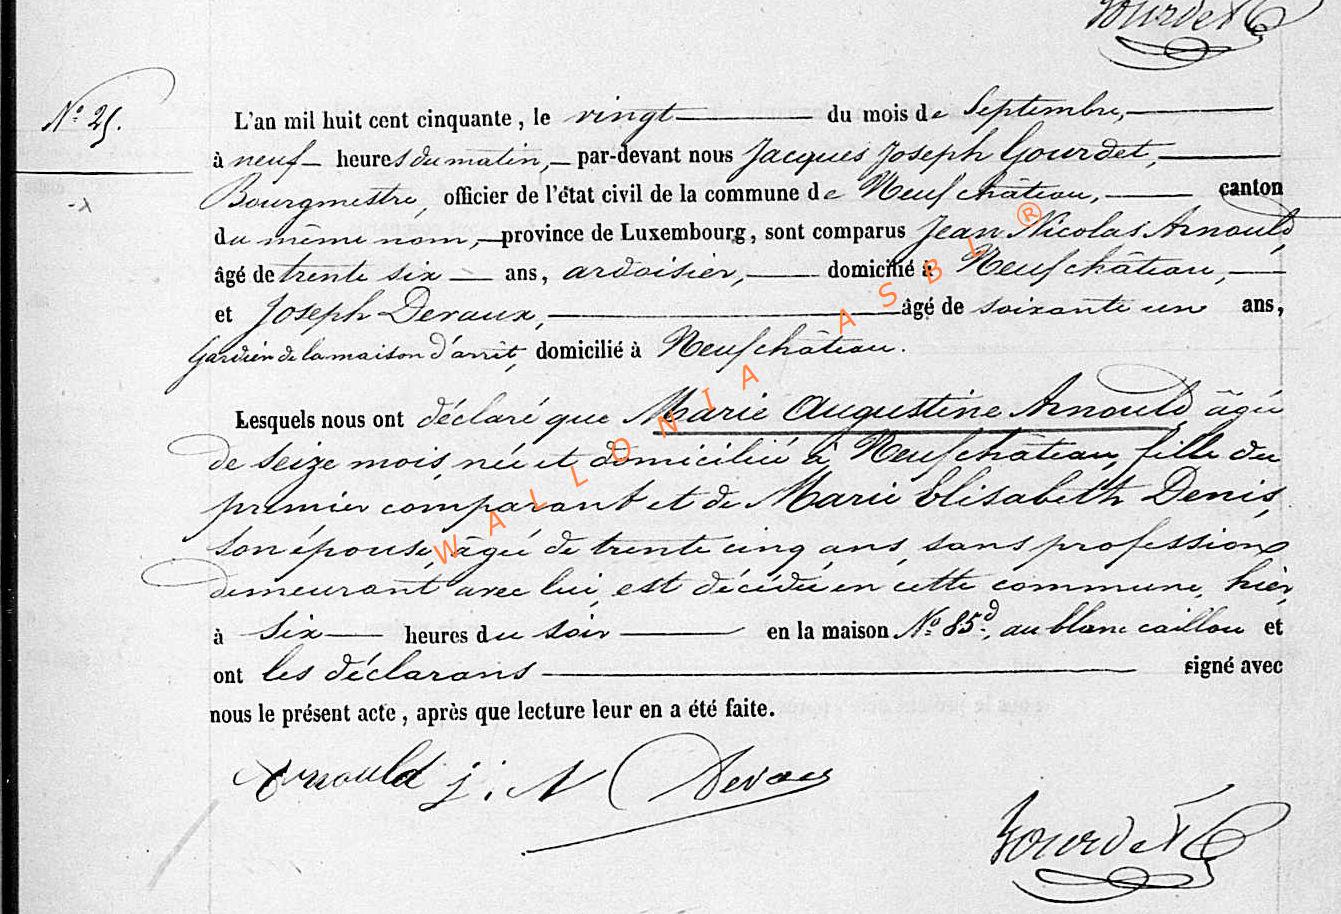 Gourdet
N.° 25.
L'an mil huit cent cinquante, le vingt du mois de Septembre,
à neuf heures du matin, par-devant nous Jacques Joseph Gourdet,
Bourgmestre, officier de l'état civil de la commune de Neufchâteau, canton
du même nom, province de Luxembourg, sont comparus Jean Nicolas Arnould,
âgé de trente six ans, ardoisier, domicilié à Neufchâteau,
et Joseph Devaux, âgé de soixante un ans,
Gardien de la maison d'arrêt, domicilié à Neufchâteau.
Lesquels nous ont déclaré que Marie Augustine Arnould âgée
de seize mois, née et domiciliée à Neufchâteau, fille du
premier comparant et de Marie Elisabeth Denis,
son épouse, âgée de trente cinq ans, sans profession
demeurant avec lui, est décédée en cette commune, hier,
à six heures du soir en la maison N.° 85d., au blanc caillou et
ont les déclarans signé avec
nous le présent acte, après que lecture leur en a été faite.
Arnould j. N Devaux
Gourdet
WALLONIA ASBL ®